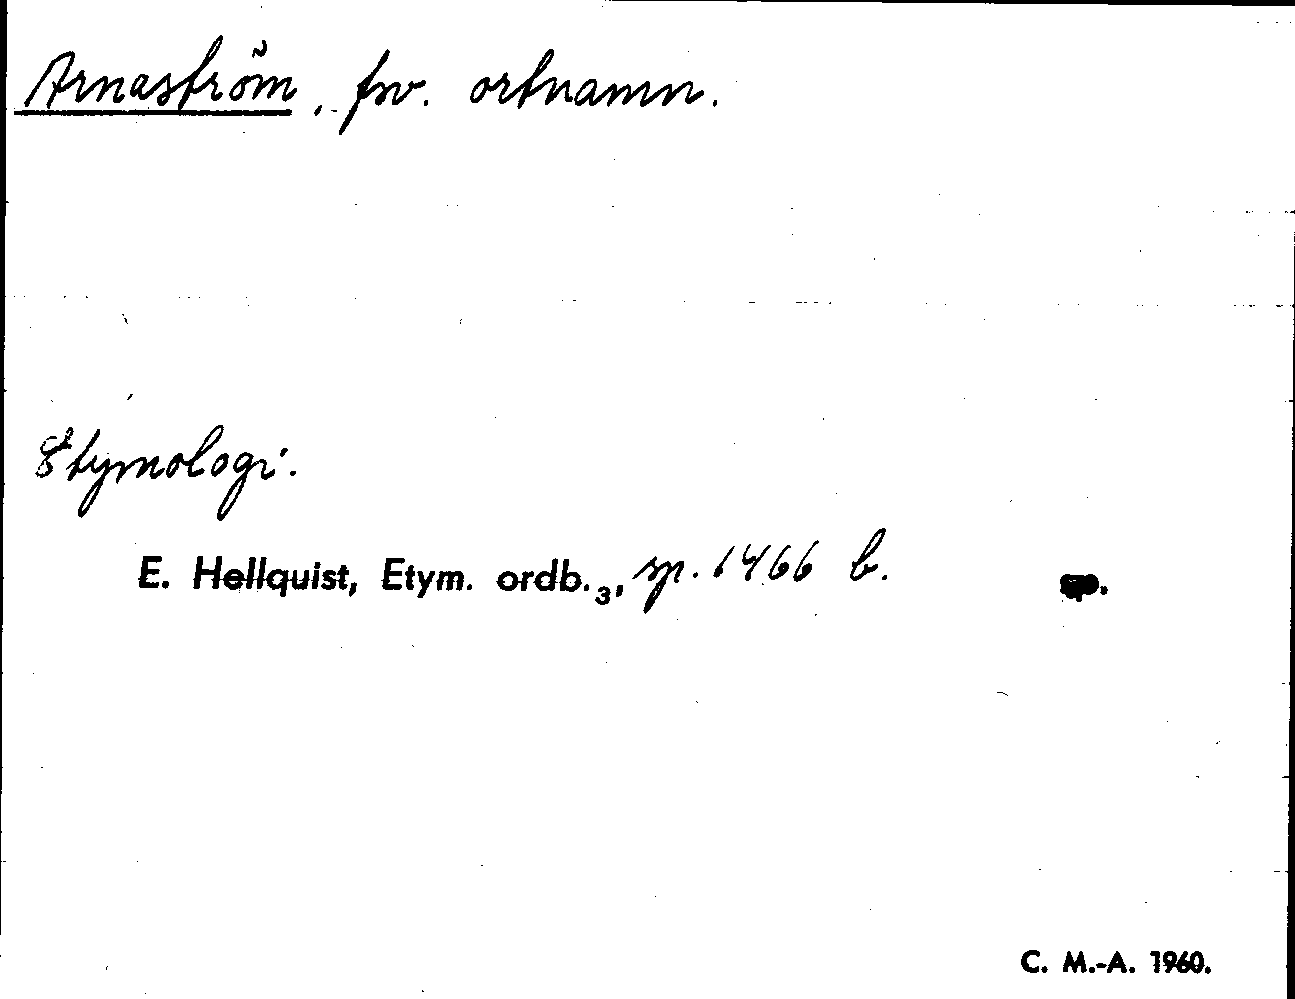 Arnaström, fsv. ortnamn.
Etymologi.
E. Hellquist, Etym. ordb.₃, sp. 1466 b.
C. M.-A. 1960.